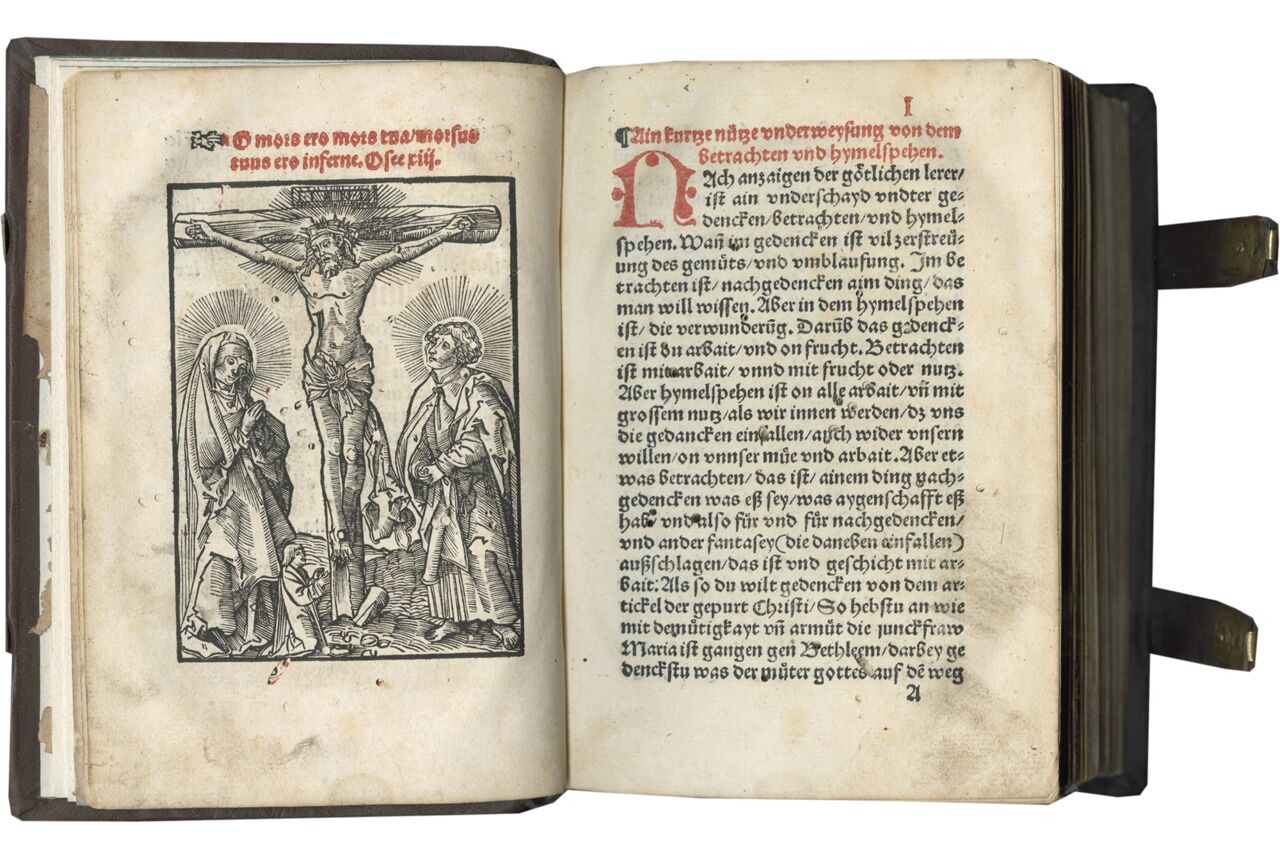 ☞ O mors ero mors tua/morsus
tuus ero inferne. Osee xiij.
I
¶Ain kurtze nütze vnderweysung von dem
betrachten vnd hymelspehen.
NAch anzaigen der götlichen lerer/
ist ain vnderschayd vndter ge⸗
dencken/betrachten/vnd hymel⸗
spehen. Wañ im gedencken ist vil zerstreü⸗
ung des gemüts/vnd vmblaufung. Im be
trachten ist/nachgedencken aim ding/das
man will wissen. Aber in dem hymelspehen
ist/die verwunderũg. Darũb das gedenck⸗
en ist on arbait/vnd on frucht. Betrachten
ist mit arbait/vnnd mit frucht oder nutz.
Aber hymelspehen ist on alle arbait/vñ mit
grossem nutz/als wir innen werden/dz vns
die gedancken einfallen/auch wider vnsern
willen/on vnnser müe vnd arbait. Aber et⸗
was betrachten/das ist/ainem ding nach⸗
gedencken was eß sey/was aygenschafft eß
hab/vnd also für vnd für nachgedencken/
vnd ander fantasey(die daneben einfallen)
außschlagen/das ist vnd geschicht mit ar⸗
bait. Als so du wilt gedencken von dem ar⸗
tickel der gepurt Christi/So hebstu an wie
mit demütigkayt vñ armůt die junckfraw
Maria ist gangen gen Bethleem/darbey ge
denckstu was der můter gottes auf dẽ weg
A